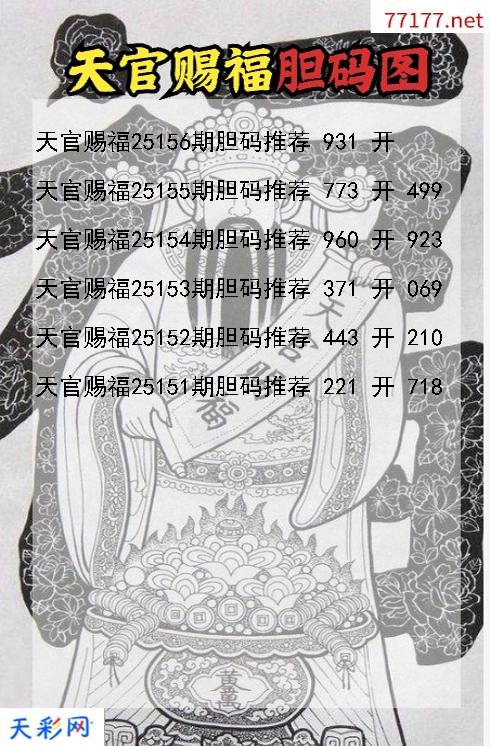 77177.net
天官赐福胆码图
天官赐福25156期胆码推荐 931 开
天官赐福25155期胆码推荐 773 开 499
天官赐福25154期胆码推荐 960 开 923
天官赐福25153期胆码推荐 371 开 069
天官赐福25152期胆码推荐 443 开 210
天官赐福25151期胆码推荐 221 开 718
天官賜福
天彩网